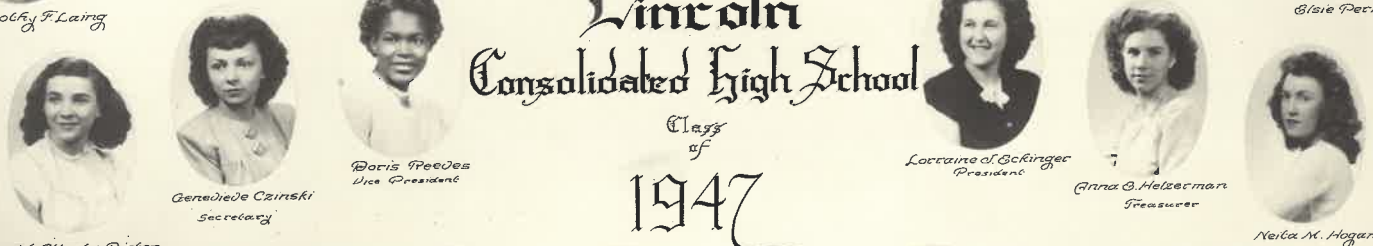 Lincoln
Consolidated High School
Class
of
1947
Laing
Genevieve Czinski
Secretary
Doris Reeves
Vice President
Lorraine J. Eckinger
President
Anna B. Helzerman
Treasurer
Elsie
Neita M. Hogan